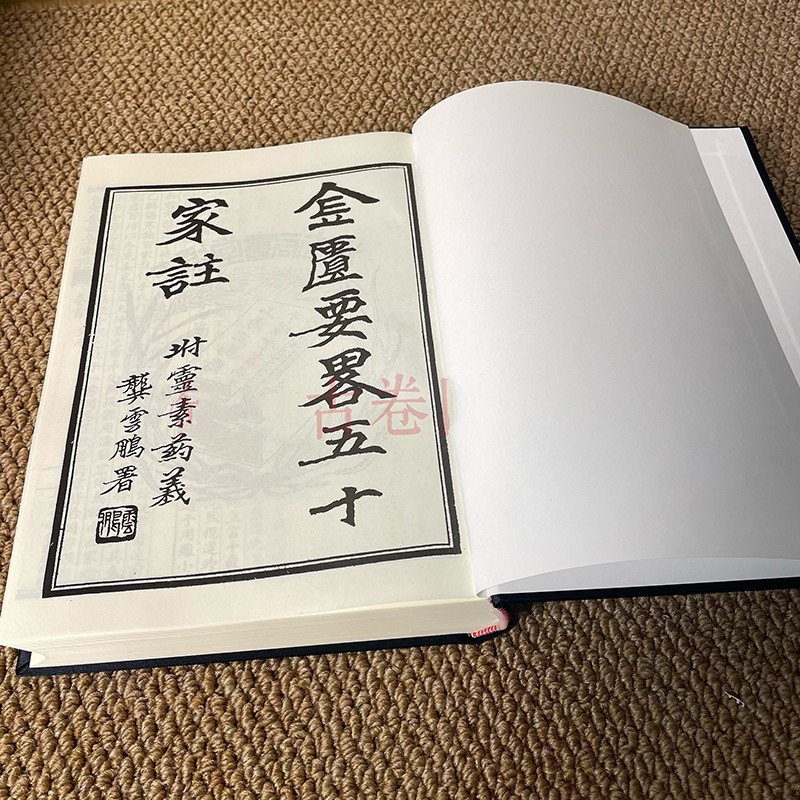 金匱要畧五十
家註
坿靈素药義
龔雲鵬署
雲鵬
古卷